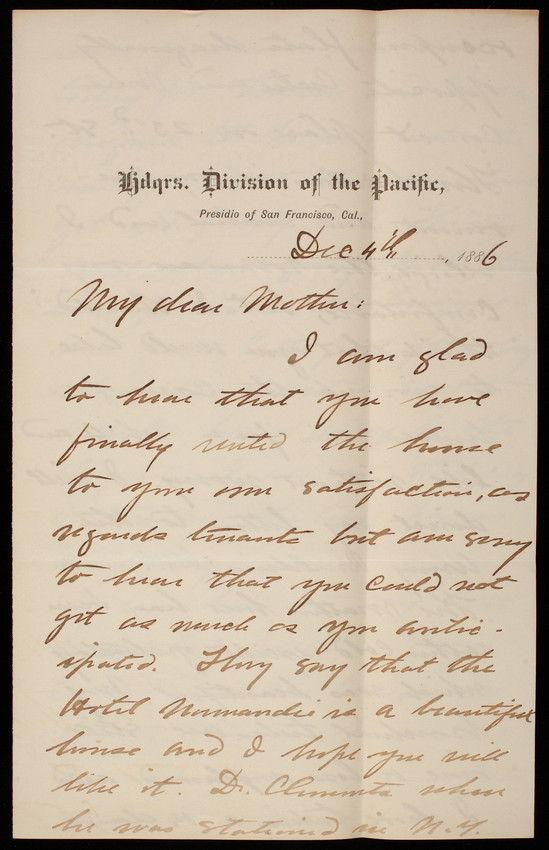 Hdqrs. Division of the Pacific,
Presidio of San Francisco, Cal.,
Dec 4th, 1886
My dear Mother:
I am glad
to hear that you have
finally rented the house
to your own satisfaction, as
regards tenants but am sorry
to hear that you could not
get as much as you antic-
ipated. They say that the
Hotel Normandie is a beautiful
house and I hope you will
like it. Dr. Clements when
he was stationed in N.Y.